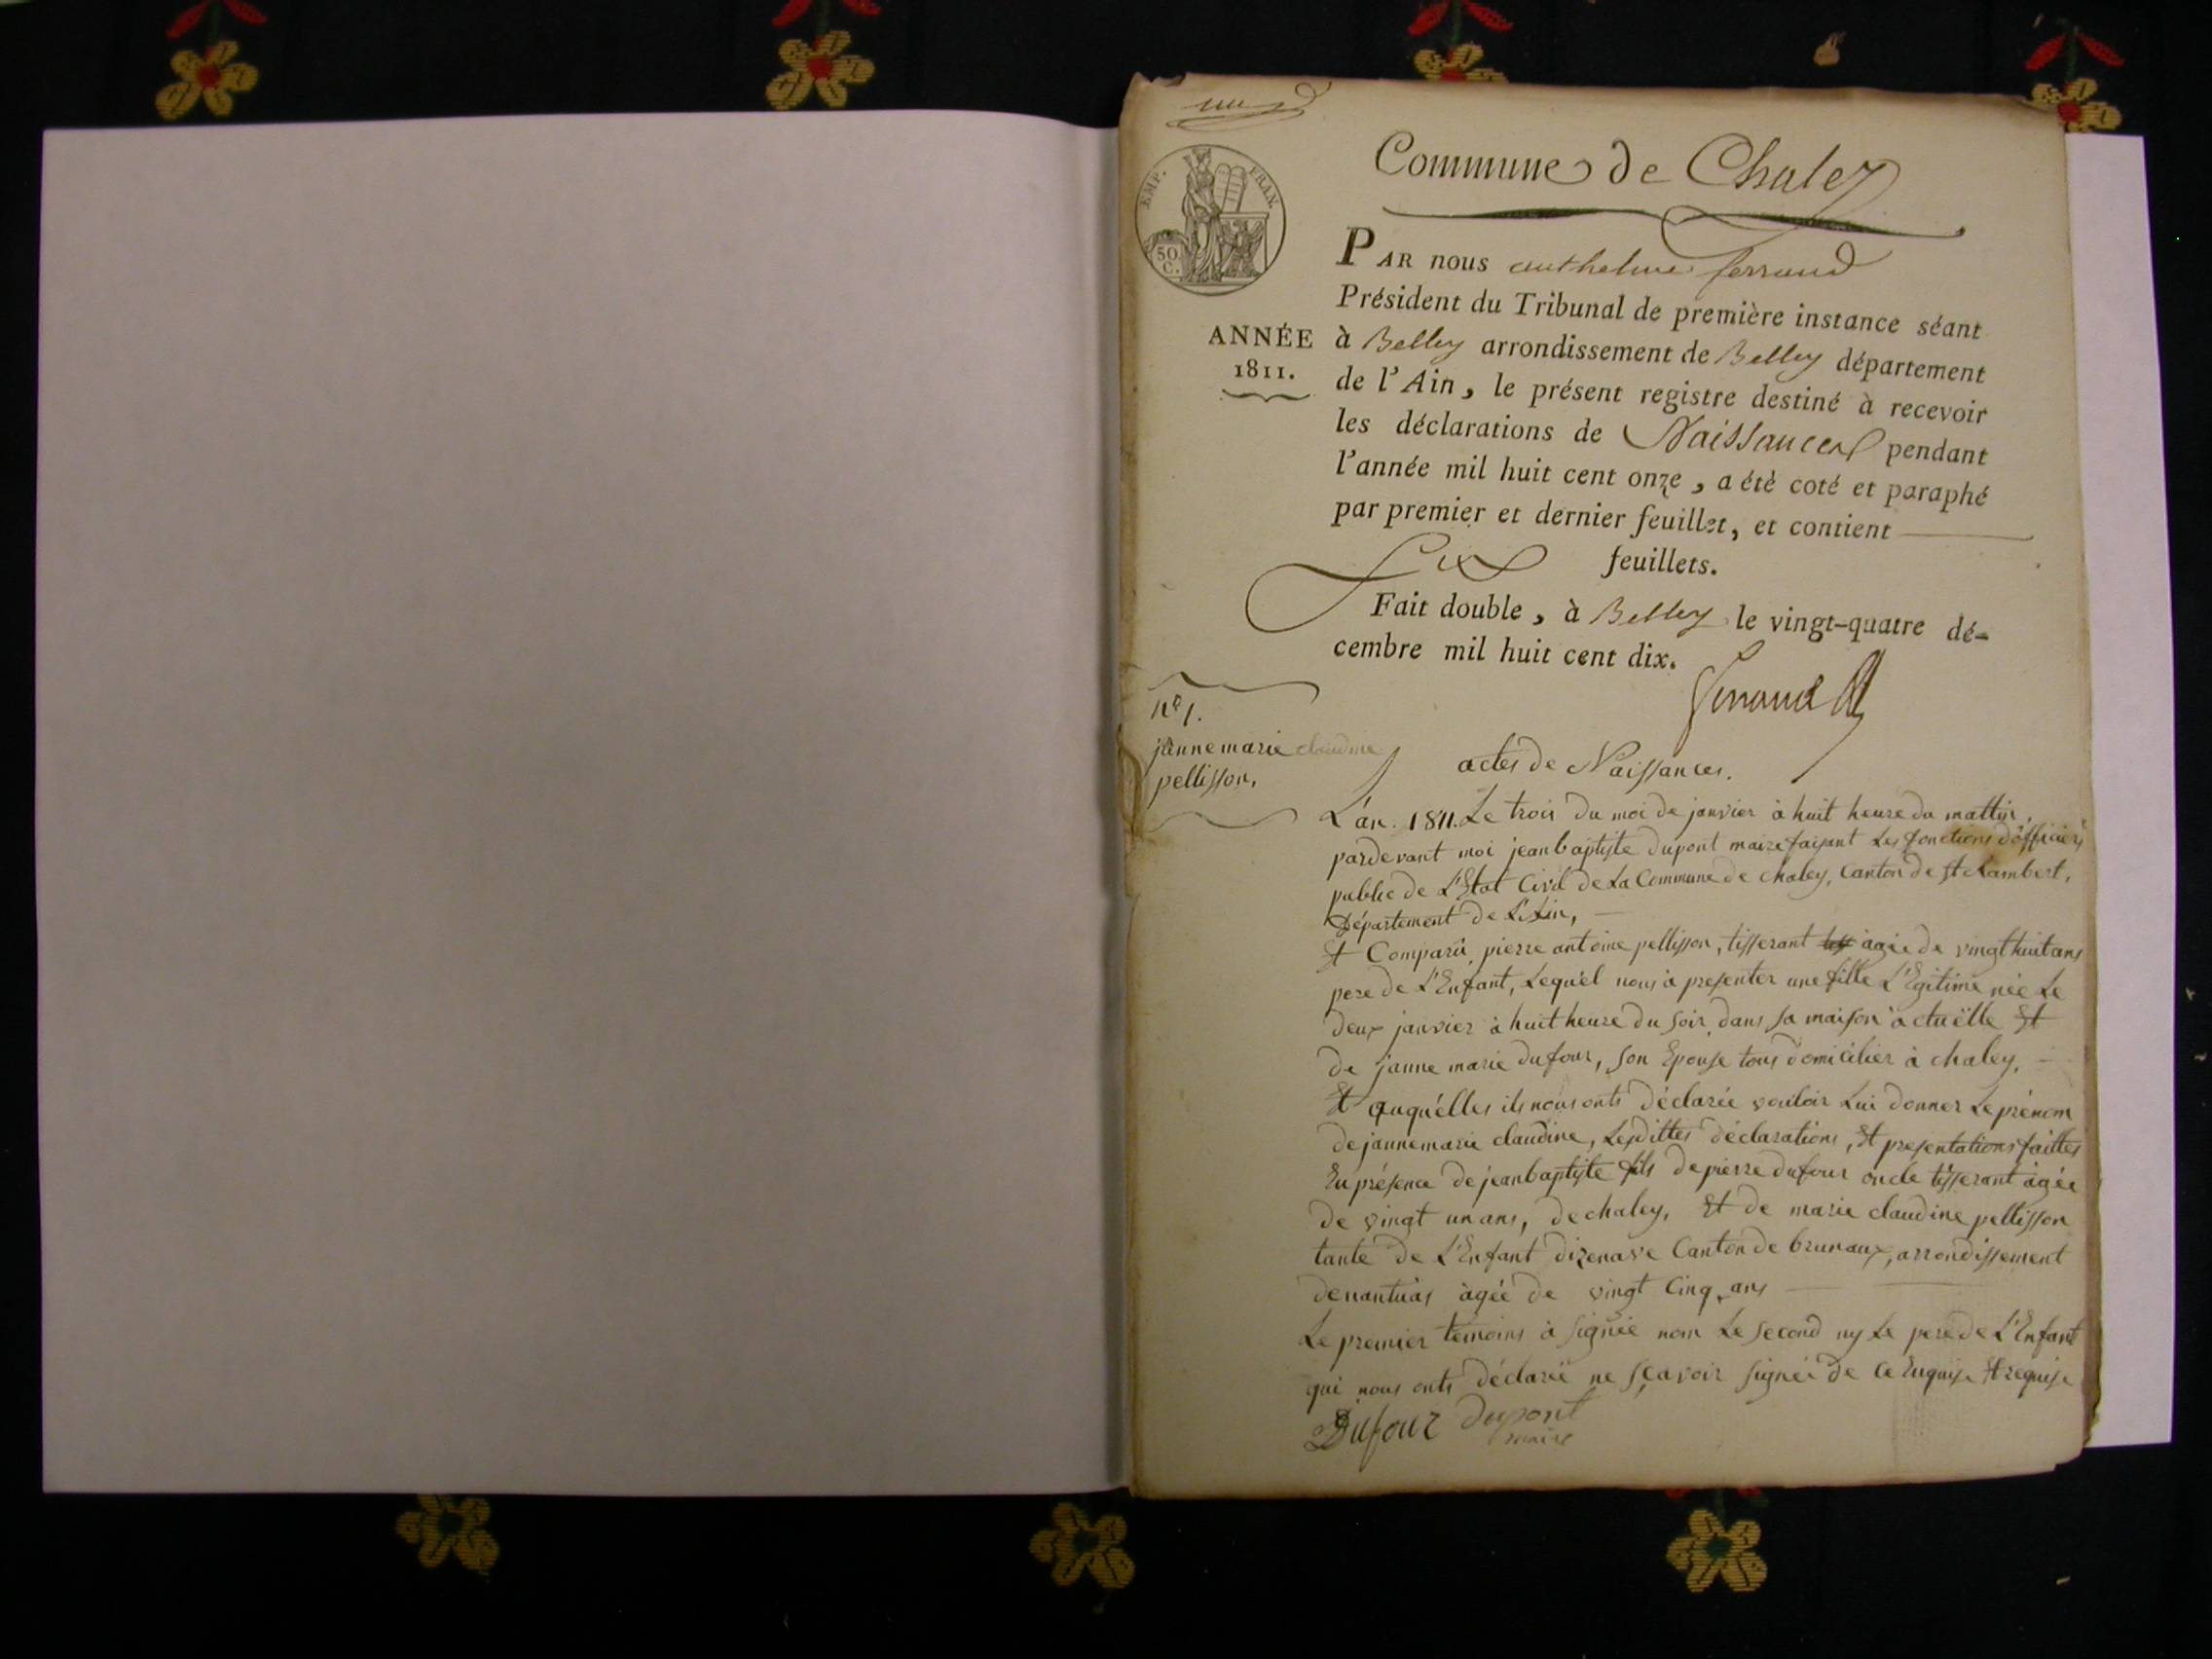 Commune de Chaley
EMP. FRAN.
50
C.
PAR nous anthelme ferrand
Président du Tribunal de première instance séant
ANNÉE
1811.
à Belley arrondissement de Belley département
de l'Ain, le présent registre destiné à recevoir
les déclarations de Naissances pendant
l'année mil huit cent onze, a été coté et paraphé
par premier et dernier feuillet, et contient
six feuillets.
Fait double, à Belley le vingt-quatre dé-
cembre mil huit cent dix.
ferrand
n° 1.
janne marie claudine
pellisson,
actes de Naissances.
L'an. 1811. Le trois du moi de janvier à huit heure du mattin,
pardevant moi jean baptiste dupont maire faisant Les fonctions d'officiers
public de L'Etat Civil de La Commune de chaley, Canton de St Rambert,
Département de L'Ain,
Et Comparû, pierre antoine pellisson, tisserant agée de vingt huit ans
pere de L'Enfant, Lequél nous à presenter une fille L'Egitime née Le
deux janvier à huit heure du soir dans sa maison actuëlle Et
de janne marie dufour, son Epouse tous domicilier à chaley,
Et auquélles ils nous onts déclarée vouloir Lui donner Le prénom
de janne marie claudine, Lesdittes déclarations, Et presentations faittes
En présence de jean baptiste fils de pierre dufour oncle tisserant àgée
de vingt un ans, de chaley, Et de marie claudine pellisson
tante de L'Enfant dizenave Canton de brunaux, arrondissement
de nantuas àgée de vingt Cinq ans
Le premier temoins à signée nom Le second ny Le pere de L'Enfant
qui nous onts déclarée ne sçavoir signée de Ce Enquise Et requise
Dufour dupont
maire